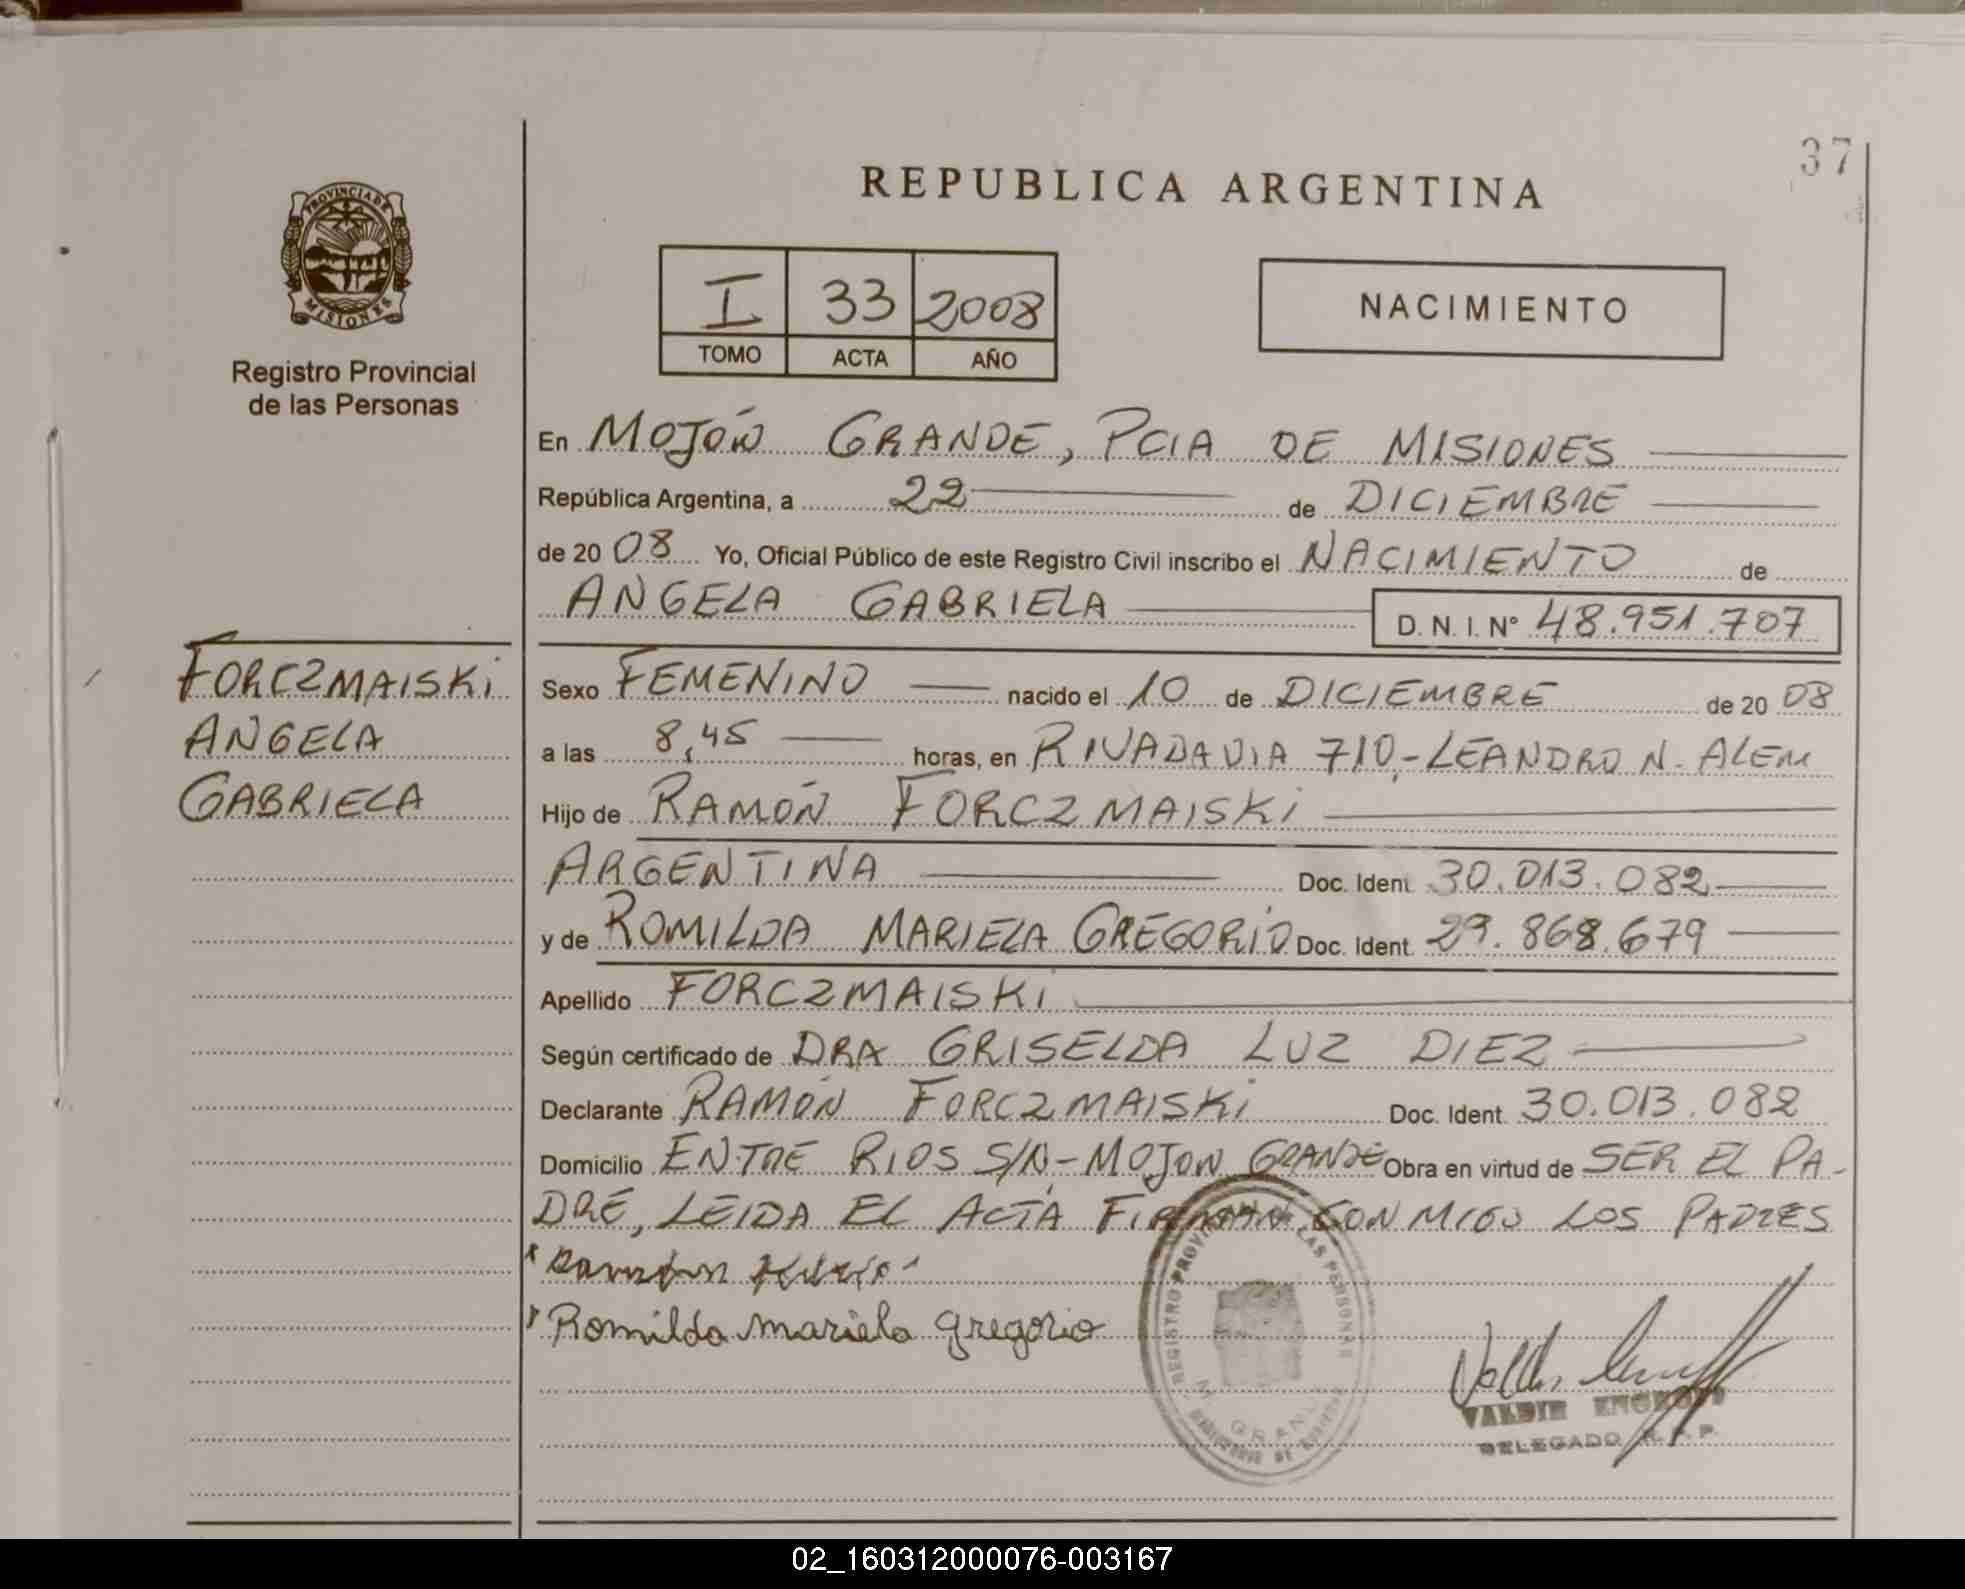 37
REPUBLICA ARGENTINA
PROVINCIA DE
MISIONES
Registro Provincial
de las Personas
I 33 2008
TOMO ACTA AÑO
NACIMIENTO
En MOJÓN GRANDE, PCIA DE MISIONES
República Argentina, a 22 de DICIEMBRE
de 20 08 Yo, Oficial Público de este Registro Civil inscribo el NACIMIENTO de
ANGELA GABRIELA D. N. I. N° 48.951.707
FORCZMAISKI
ANGELA
GABRIELA
Sexo FEMENINO nacido el 10 de DICIEMBRE de 20 08
a las 8,45 horas, en RIVADAVIA 710,-LEANDRO N. ALEM
Hijo de RAMÓN FORCZMAISKI
ARGENTINA Doc. Ident. 30.013.082
y de ROMILDA MARIELA GREGORIO Doc. Ident. 29.868.679
Apellido FORCZMAISKI
Según certificado de DRA GRISELDA LUZ DIEZ
Declarante RAMÓN FORCZMAISKI Doc. Ident. 30.013.082
Domicilio ENTRE RIOS S/N-MOJON GRANDE Obra en virtud de SER EL PA-
DRE, LEIDA EL ACTA FIRMAN CON MIGO LOS PADRES
Romilda mariela gregorio
REGISTRO PROVINCIAL DE LAS PERSONAS
M. GRANDE
DELEGADO R. P. P.
02_160312000076-003167